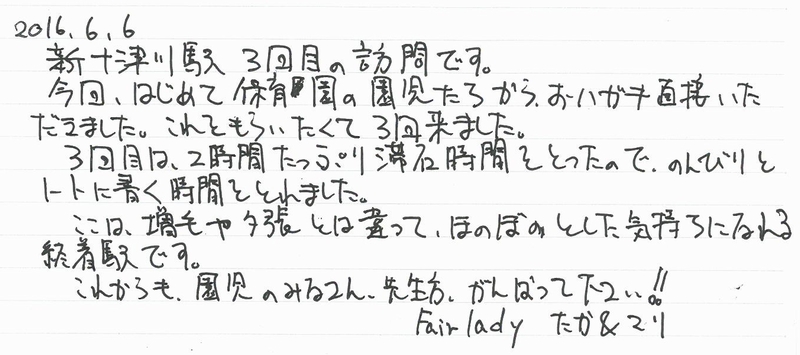 2016.6.6
新十津川駅 3回目の訪問です。
今回、はじめて保育園の園児たちから、おハガキ直接いた
だきました。これをもらいたくて3回来ました。
3回目は、2時間たっぷり滞在時間をとったので、のんびりと
ノートに書く時間をとれました。
ここは、増毛や夕張とは違って、ほのぼのとした気持ちになれる
終着駅です。
これからも、園児のみなさん、先生方、がんばって下さい!!
Fairlady たか&マリ